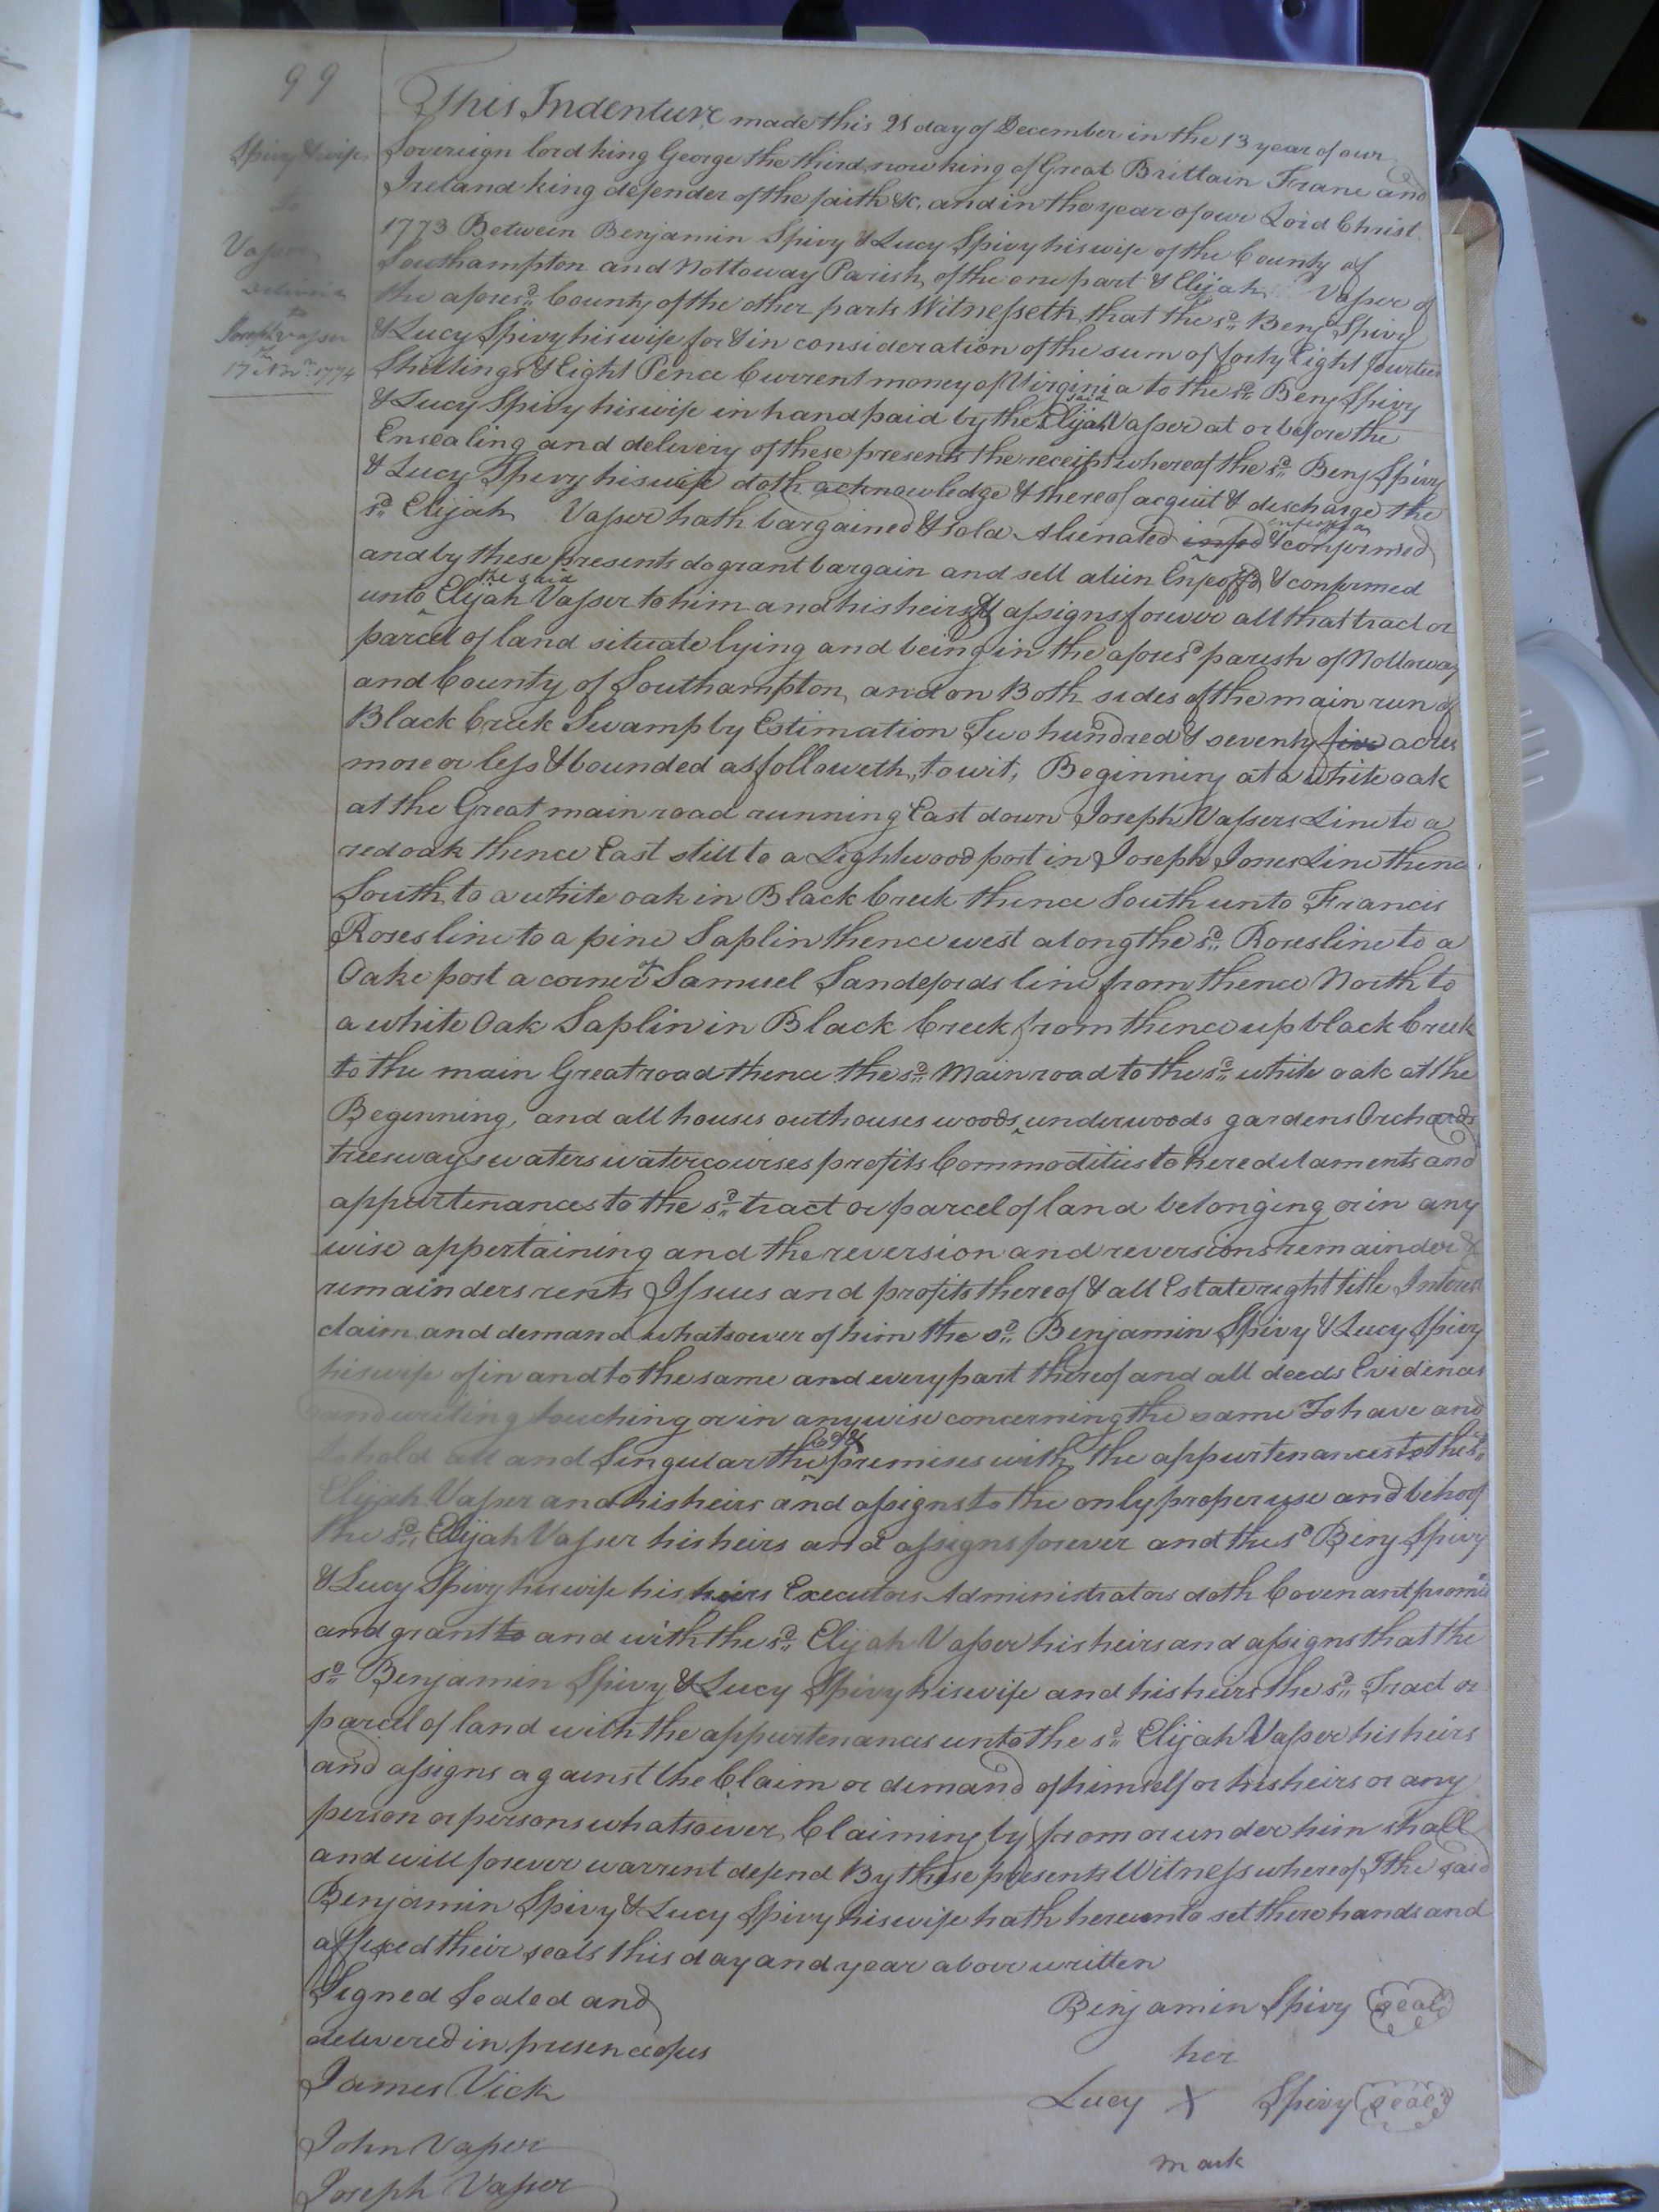 99
Spivy & wife
to
Vasser
Delivered
to
Joseph Vasser
17th Novr. 1774
This Indenture made this 21 day of December in the 13 year of our
Sovereign lord king George the third now king of Great Brittain Frane and
Ireland king defender of the faith &c. and in the year of our Lord Christ
1773 Between Benjamin Spivy & Lucy Spivy his wife of the County of
Southampton and Nottoway Parish of the one part & Elijah Vasser of
the afores.d County of the other parts Witnesseth that the s.d Benj.a Spivy
& Lucy Spivy his wife for & in consideration of the sum of forty Eight fourteen
Shillings & Eight Pence Current money of Virginia to the s.d Benj Spivy
& Lucy Spivy his wife in hand paid by the said Elijah Vasser at or before the
Ensealing and delivery of these presents the receipt whereof the s.d Benj Spivy
& Lucy Spivy his wife doth acknowledge & thereof acquit & discharge the
s.d Elijah Vasser hath bargained & sold Alienated & confirmed
and by these presents do grant bargain and sell alien Enfeoffd & confirmed
unto the said Elijah Vasser to him and his heirs & assigns forever all that tract or
parcel of land situate lying and being in the afores.d parish of Nottoway
and County of Southampton and on Both sides of the main run of
Black Creek Swamp by Estimation Two hundred & seventy five acres
more or less & bounded as followeth, to wit, Beginning at a white oak
at the Great main road running East down Joseph Vassers Line to a
red oak thence East still to a Lightwood post in Joseph Jones Line thence
South to a white oak in Black Creek thence South unto Francis
Roses line to a pine Saplin thence west along the s.d Roses line to a
Oake post a corner of Samuel Sandefords line from thence North to
a white Oak Saplin in Black Creek from thence up black Creek
to the main Great road thence the s.d Main road to the s.d white oak at the
Beginning, and all houses outhouses woods underwoods gardens Orchards
trees ways waters watercourses profits Commodities to hereditaments and
appurtenances to the s.d tract or parcel of land belonging or in any
wise appertaining and the reversion and reversions remainder &
remainders rents Issues and profits thereof & all Estate right title Interest
claim and demand whatsoever of him the s.d Benjamin Spivy & Lucy Spivy
his wife of in and to the same and every part thereof and all deeds Evidences
and writing touching or in any wise concerning the same To have and
to hold all and Singular the premises with the appurtenances to the s.d
Elijah Vasser and his heirs and assigns to the only proper use and behoof
the s.d Elijah Vasser his heirs and assigns forever and the s.d Benj Spivy
& Lucy Spivy his wife his heirs Executors Administrators doth Covenant promis
and grant to and with the s.d Elijah Vasser his heirs and assigns that the
s.d Benjamin Spivy & Lucy Spivy his wife and his heirs the s.d Tract or
parcel of land with the appurtenances unto the s.d Elijah Vasser his heirs
and assigns against the Claim or demand of himself or his heirs or any
person or persons whatsoever Claiming by from or under him shall
and will forever warrent defend By these presents Witness whereof I the said
Benjamin Spivy & Lucy Spivy his wife hath hereunto set there hands and
affixed their seals this day and year above written
Signed Sealed and
delivered in presence of us
James Vick
John Vasser
Joseph Vasser
Benjamin Spivy seal
her
Lucy X Spivy seal
mark